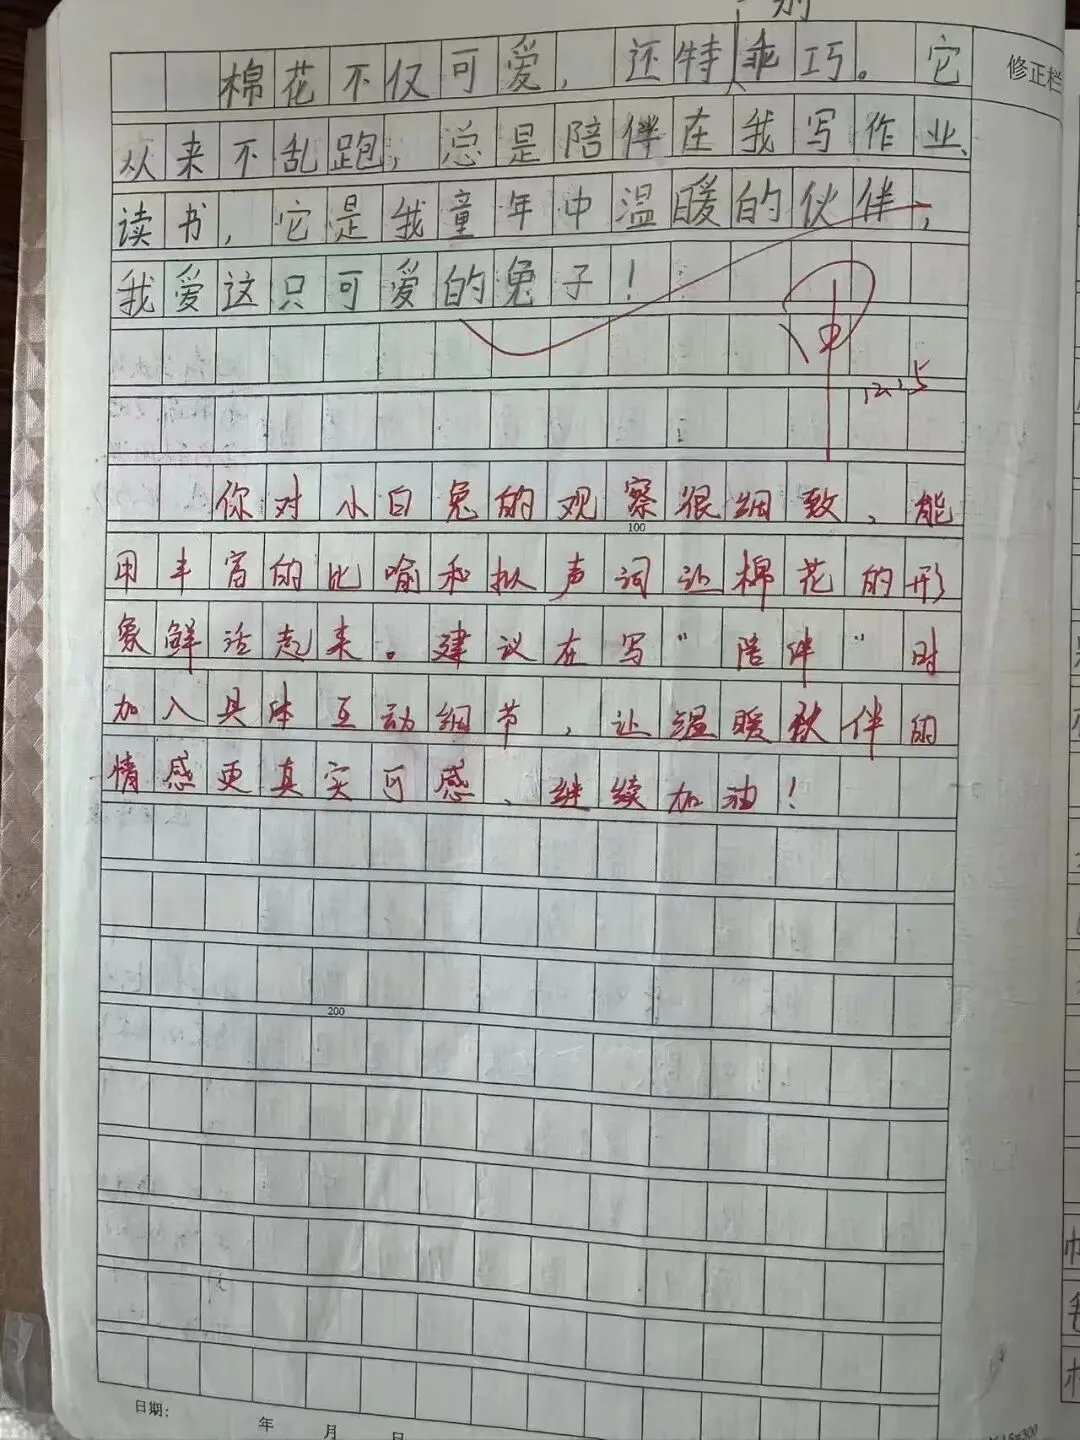 别
棉花不仅可爱，还特乖巧。它
修正栏
从来不乱跑，总是陪伴在我写作业、
读书，它是我童年中温暖的伙伴，
我爱这只可爱的兔子！
12.15
你对小白兔的观察很细致，能
100
用丰富的比喻和拟声词让棉花的形
象鲜活起来。建议在写“陪伴”时
加入具体互动细节，让温暖伙伴的
情感更真实可感，继续加油！
200
日期： 年 月 日
15=300